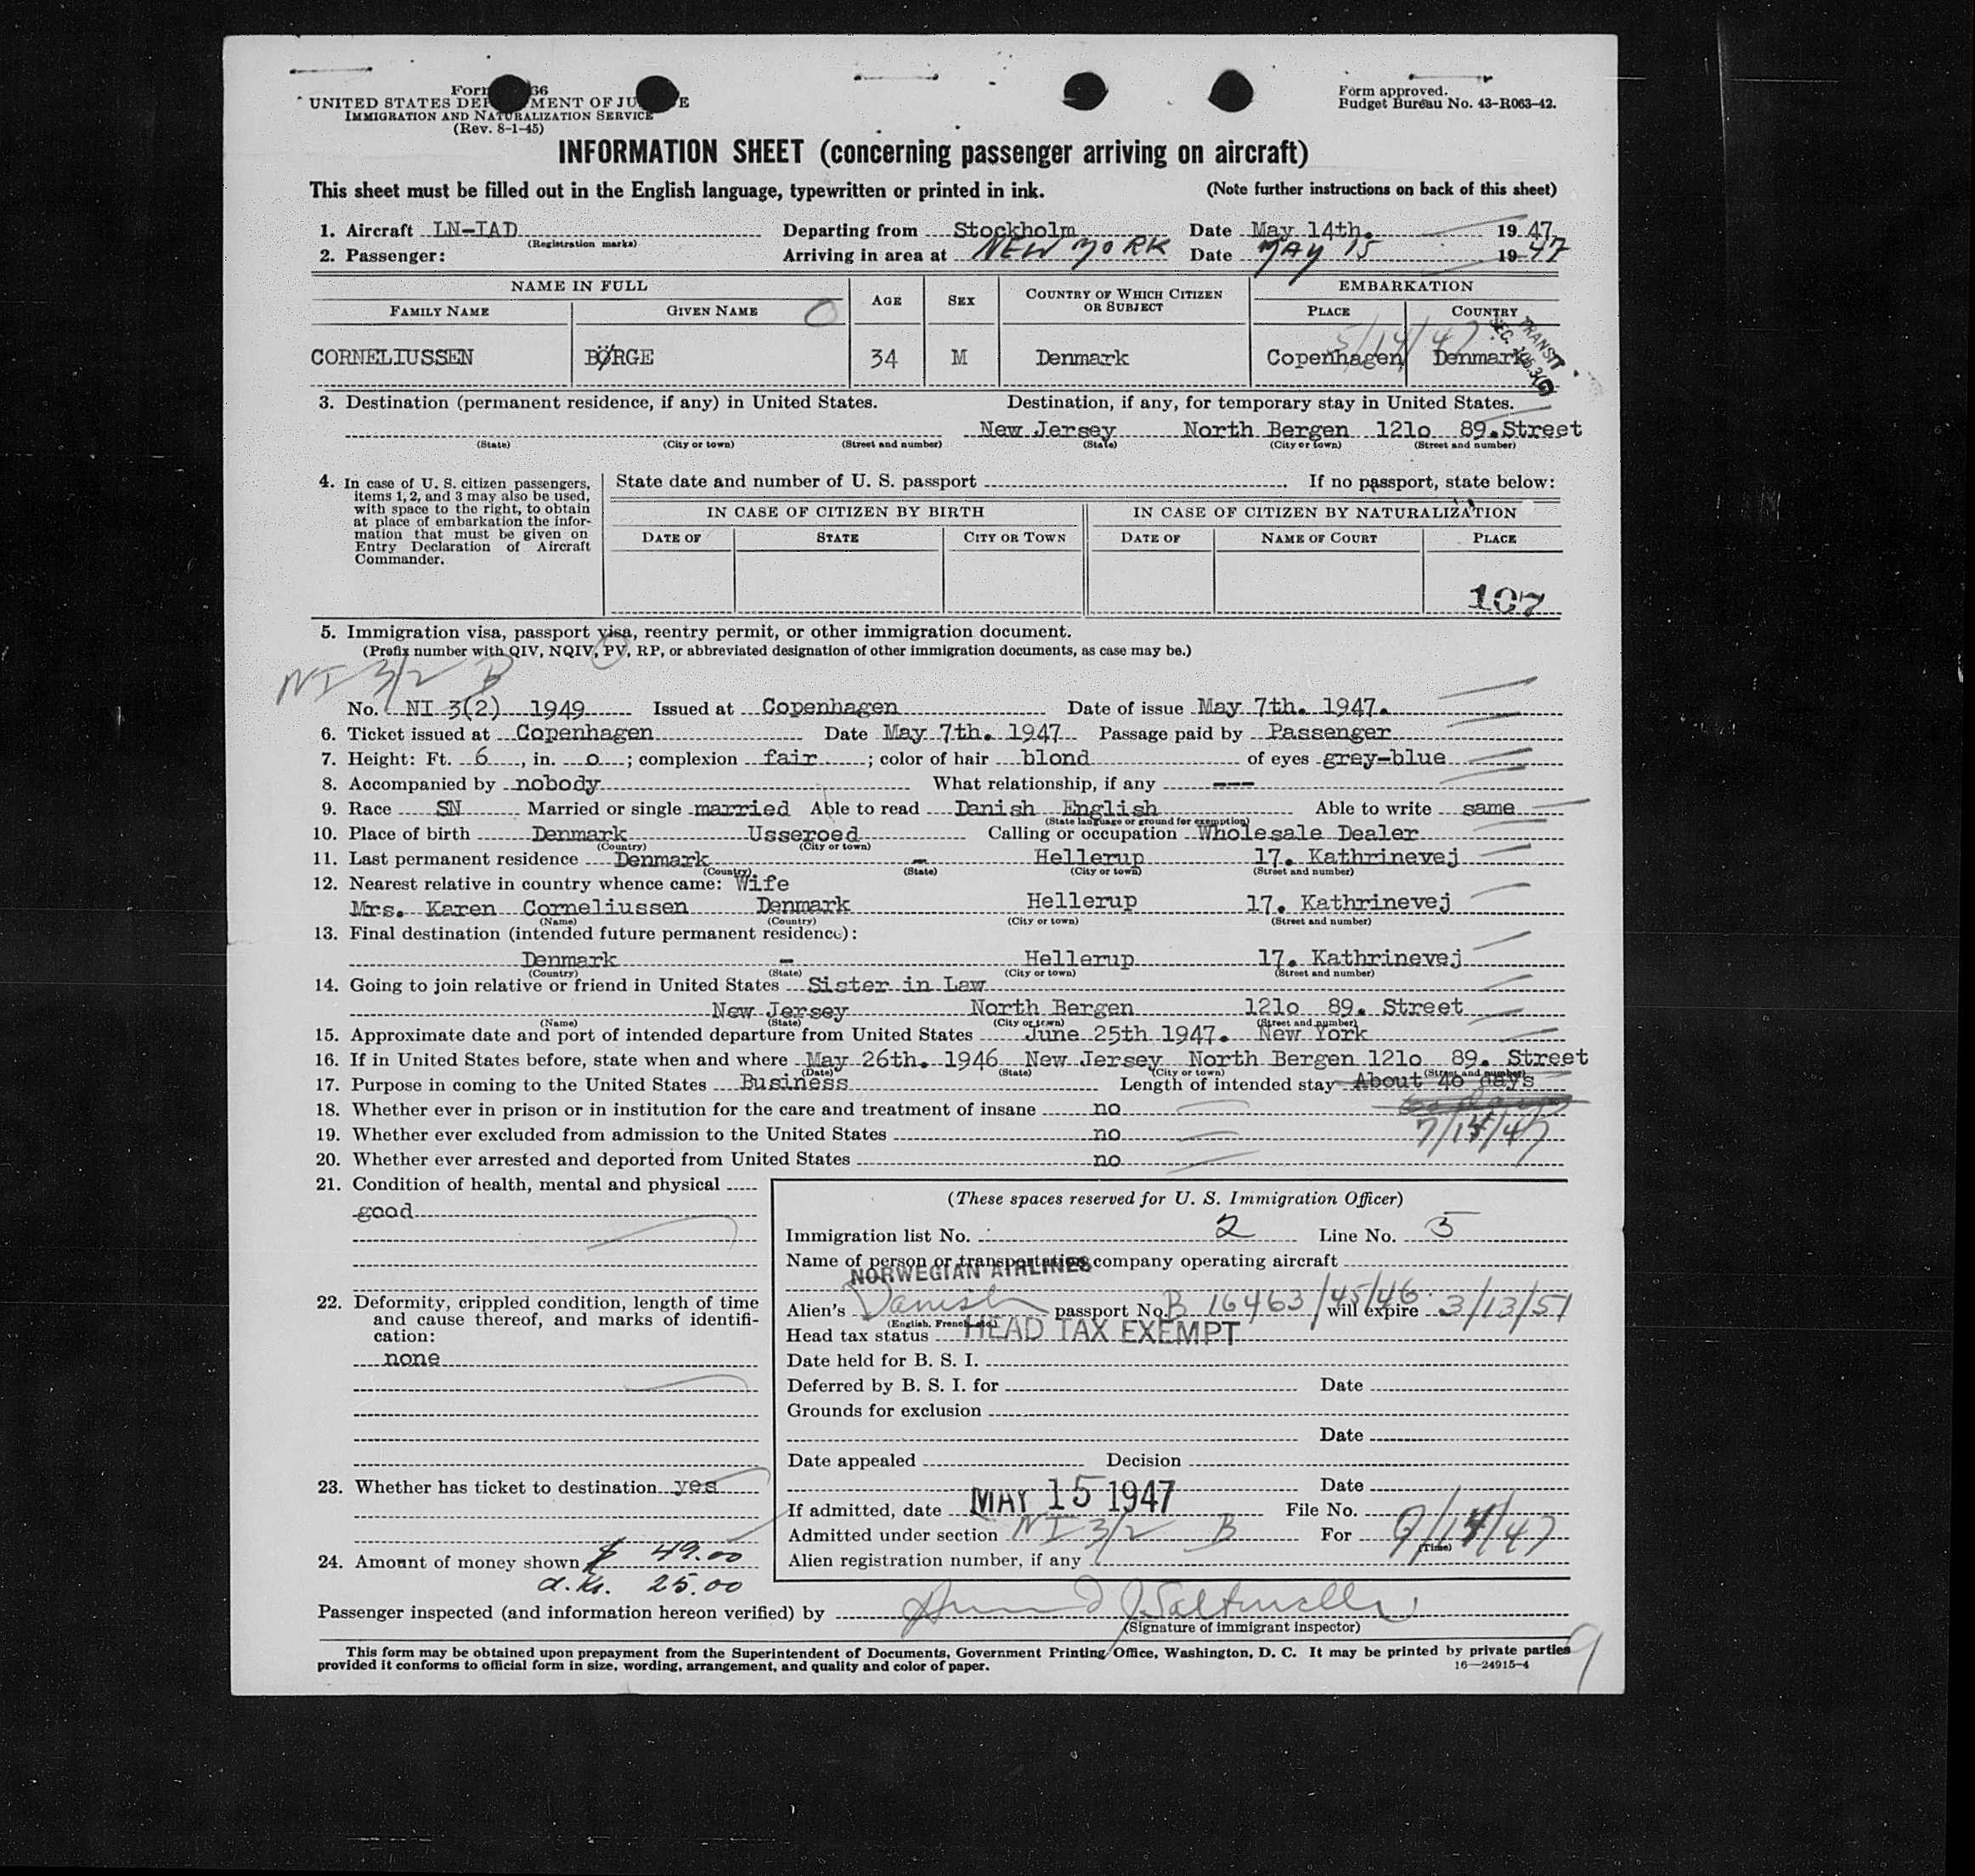 Form 66
UNITED STATES DEPARTMENT OF JUSTICE
IMMIGRATION AND NATURALIZATION SERVICE
(Rev. 8-1-45)
Form approved.
Budget Bureau No. 43-R063-42.
INFORMATION SHEET (concerning passenger arriving on aircraft)
This sheet must be filled out in the English language, typewritten or printed in ink. (Note further instructions on back of this sheet)
1. Aircraft LN-IAD Departing from Stockholm Date May 14th. 1947
(Registration marks)
2. Passenger: Arriving in area at NEW YORK Date MAY 15 1947
NAME IN FULL AGE SEX COUNTRY OF WHICH CITIZEN OR SUBJECT EMBARKATION
FAMILY NAME GIVEN NAME PLACE COUNTRY
5/14/47
TRANSIT
CORNELIUSSEN BØRGE 34 M Denmark Copenhagen Denmark
3. Destination (permanent residence, if any) in United States. Destination, if any, for temporary stay in United States.
New Jersey North Bergen 121o 89. Street
(State) (City or town) (Street and number) (State) (City or town) (Street and number)
4. In case of U. S. citizen passengers, items 1, 2, and 3 may also be used, with space to the right, to obtain at place of embarkation the information that must be given on Entry Declaration of Aircraft Commander.
State date and number of U. S. passport If no passport, state below:
IN CASE OF CITIZEN BY BIRTH IN CASE OF CITIZEN BY NATURALIZATION
DATE OF STATE CITY OR TOWN DATE OF NAME OF COURT PLACE
107
5. Immigration visa, passport visa, reentry permit, or other immigration document.
(Prefix number with QIV, NQIV, PV, RP, or abbreviated designation of other immigration documents, as case may be.)
NI 3/2 B
No. NI 3(2) 1949 Issued at Copenhagen Date of issue May 7th. 1947.
6. Ticket issued at Copenhagen Date May 7th. 1947 Passage paid by Passenger
7. Height: Ft. 6, in. o; complexion fair; color of hair blond of eyes grey-blue
8. Accompanied by nobody What relationship, if any ---
9. Race SN Married or single married Able to read Danish English Able to write same
(State language or ground for exemption)
10. Place of birth Denmark Usseroed Calling or occupation Wholesale Dealer
(Country) (City or town)
11. Last permanent residence Denmark - Hellerup 17. Kathrinevej
(Country) (State) (City or town) (Street and number)
12. Nearest relative in country whence came: Wife
Mrs. Karen Corneliussen Denmark Hellerup 17. Kathrinevej
(Name) (Country) (City or town) (Street and number)
13. Final destination (intended future permanent residence):
Denmark - Hellerup 17. Kathrinevej
(Country) (State) (City or town) (Street and number)
14. Going to join relative or friend in United States Sister in Law
New Jersey North Bergen 121o 89. Street
(Name) (State) (City or town) (Street and number)
15. Approximate date and port of intended departure from United States June 25th 1947. New York
16. If in United States before, state when and where May 26th. 1946 New Jersey North Bergen 121o 89. Street
(Date) (State) (City or town) (Street and number)
17. Purpose in coming to the United States Business Length of intended stay About 40 days
18. Whether ever in prison or in institution for the care and treatment of insane no
7/14/47
19. Whether ever excluded from admission to the United States no
20. Whether ever arrested and deported from United States no
21. Condition of health, mental and physical
good
22. Deformity, crippled condition, length of time and cause thereof, and marks of identification:
none
23. Whether has ticket to destination yes
24. Amount of money shown $ 49.00
d.Kr. 25.00
(These spaces reserved for U. S. Immigration Officer)
Immigration list No. 2 Line No. 5
Name of person or transportation company operating aircraft
NORWEGIAN AIRLINES
Alien's Danish passport No. B 16463/45/46 will expire 3/13/51
(English, French, etc.)
Head tax status HEAD TAX EXEMPT
Date held for B. S. I.
Deferred by B. S. I. for Date
Grounds for exclusion
Date
Date appealed Decision
Date
If admitted, date MAY 15 1947 File No.
Admitted under section NI 3/2 B For 7/14/47
(Time)
Alien registration number, if any
Passenger inspected (and information hereon verified) by
(Signature of immigrant inspector)
This form may be obtained upon prepayment from the Superintendent of Documents, Government Printing Office, Washington, D. C. It may be printed by private parties
provided it conforms to official form in size, wording, arrangement, and quality and color of paper.
16—24915-4
9